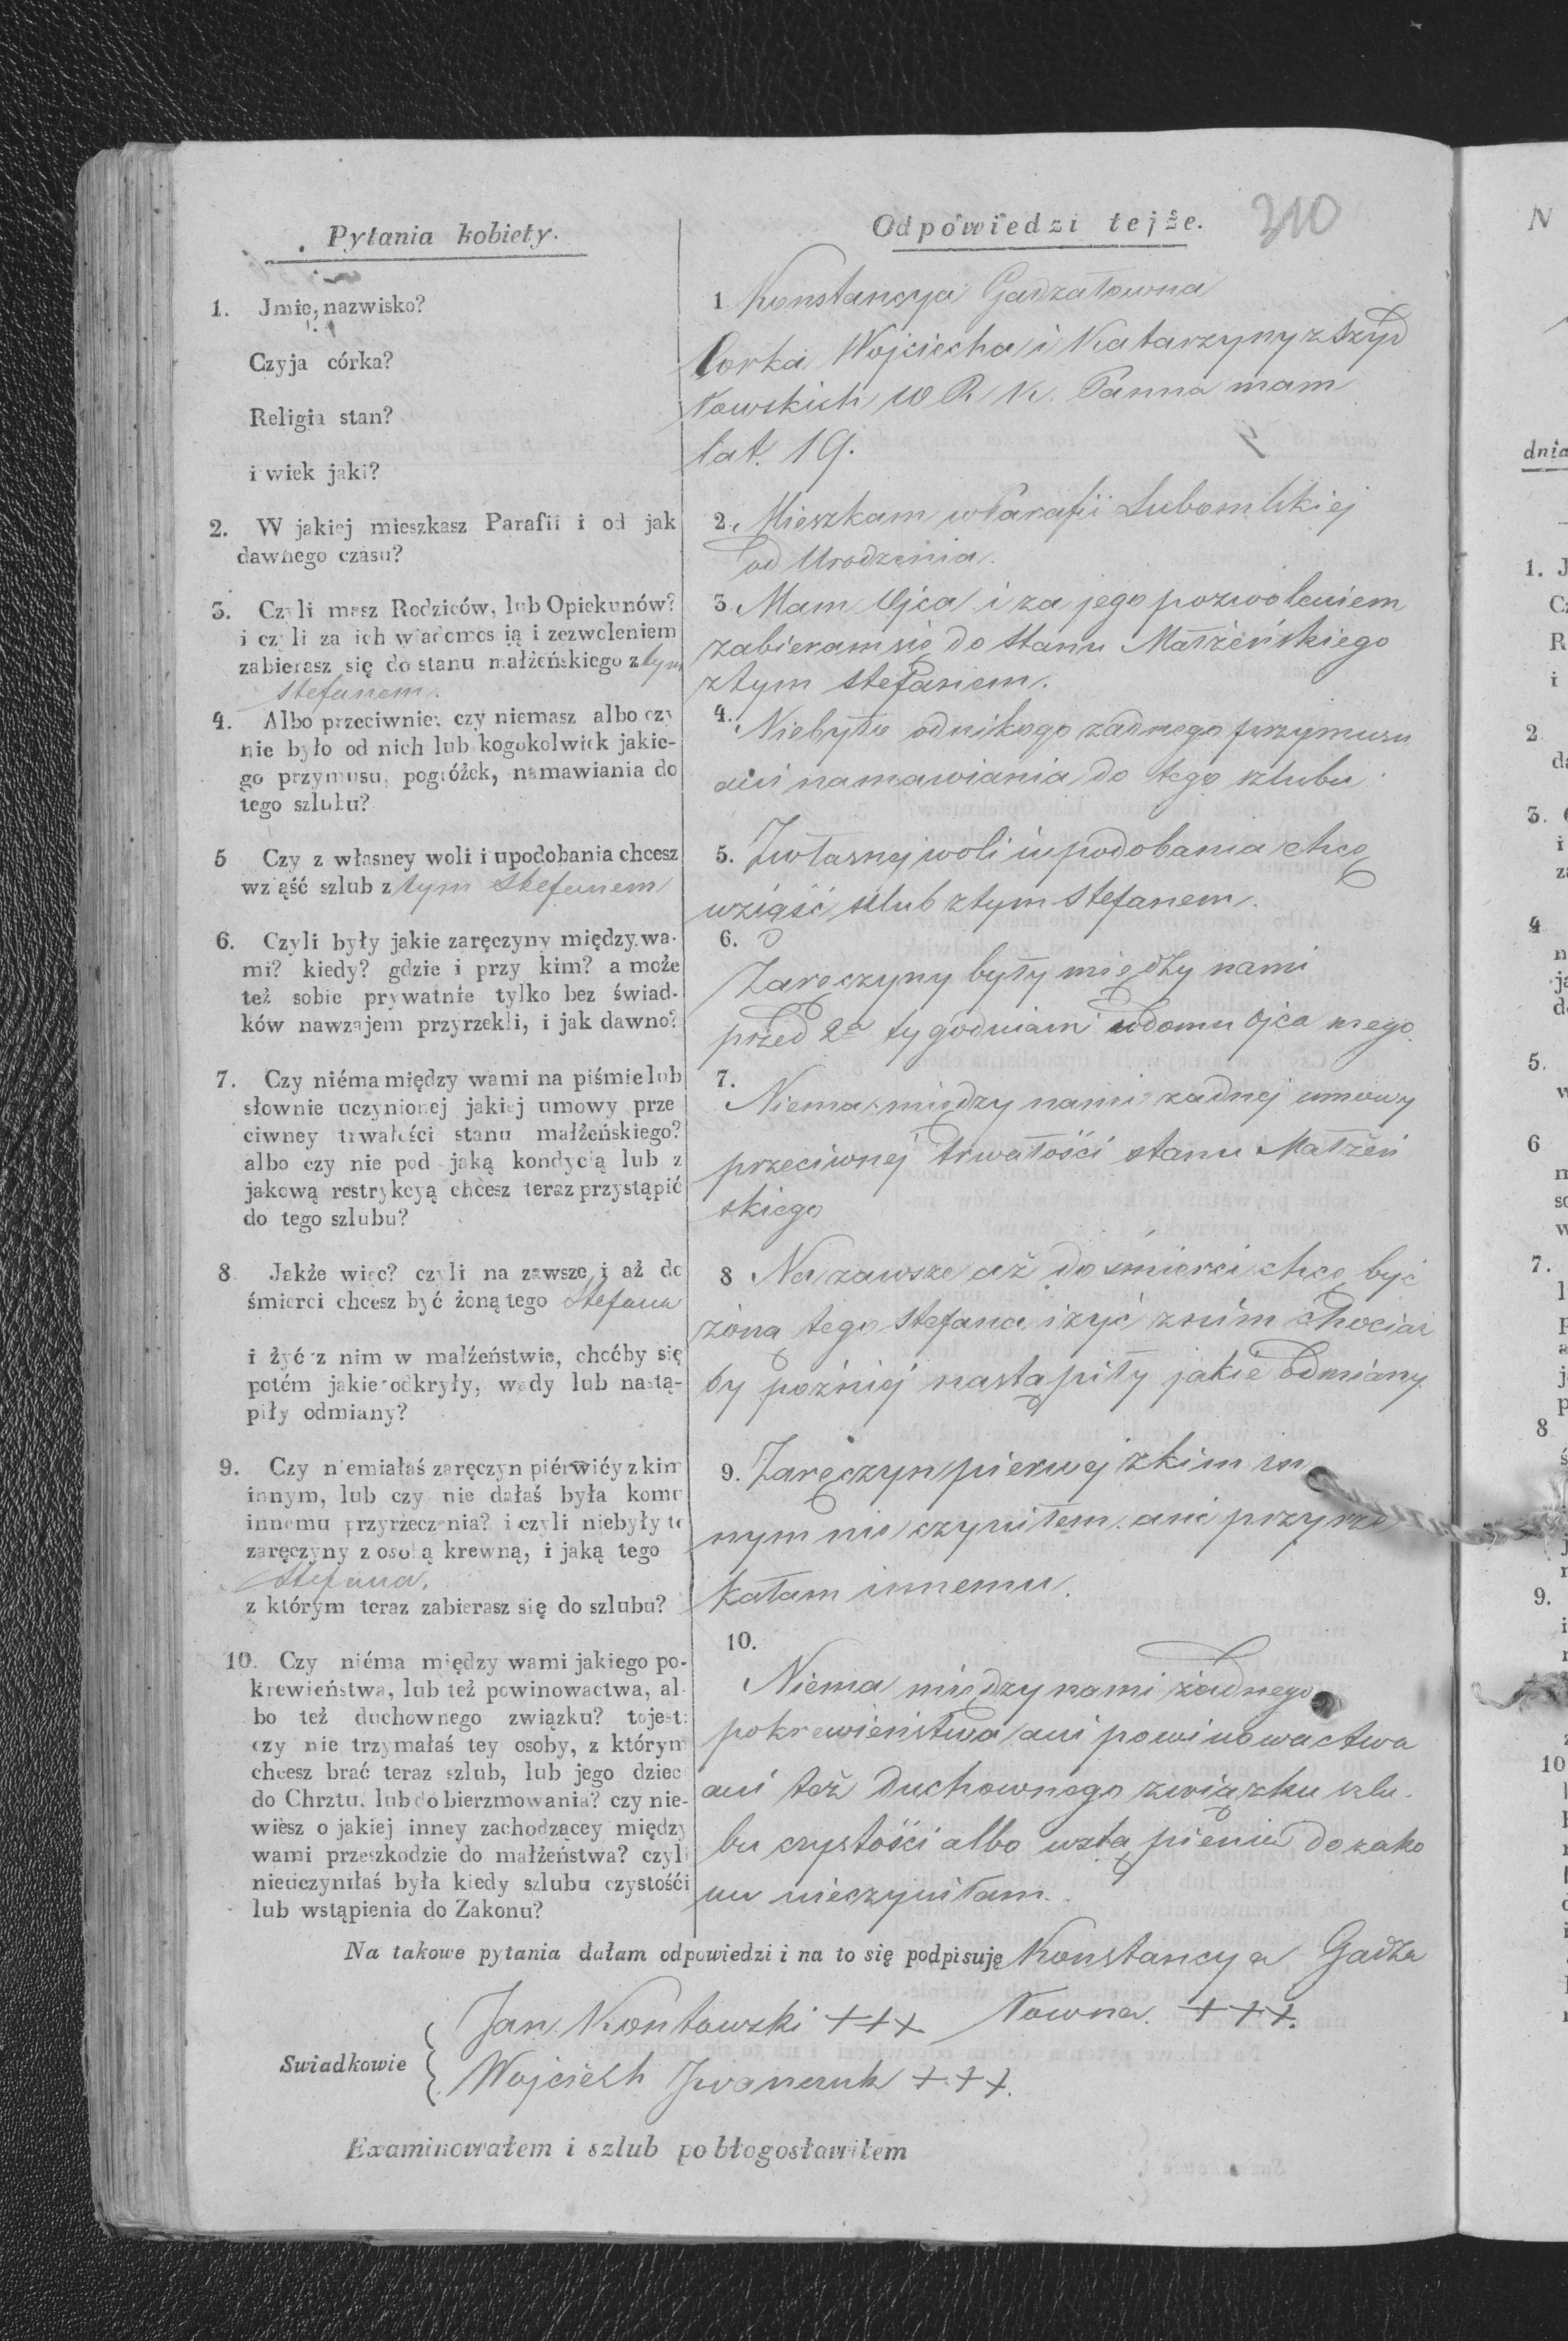 310
Pytania kobiety.
1. Jmie, nazwisko?
Czyja córka?
Religia stan?
i wiek jaki?
2. W jakiej mieszkasz Parafii i od jak
dawnego czasu?
3. Czyli masz Rodziców, lub Opiekunów?
i czyli za ich wiadomos ią i zezwoleniem
zabierasz się do stanu małżeńskiego z tym
Stefanem.
4. Albo przeciwnie, czy niemasz albo czy
nie było od nich lub kogokolwiek jakie-
go przymusu, pogróżek, namawiania do
tego szlubu?
5 Czy z własney woli i upodobania chcesz
wziąść szlub z tym Stefanem
6. Czyli były jakie zaręczyny między wa-
mi? kiedy? gdzie i przy kim? a może
też sobie prywatnie tylko bez świad-
ków nawzajem przyrzekli, i jak dawno?
7. Czy niéma między wami na piśmie lub
słownie uczynionej jakiej umowy prze
ciwney trwałości stanu małżeńskiego?
albo czy nie pod jaką kondycią lub z
jakową restrykcyą chcesz teraz przystąpić
do tego szlubu?
8 Jakże więc? czyli na zawsze i aż do
śmierci chcesz być żoną tego Stefana
i żyć z nim w małżeństwie, choćby się
potém jakie odkryły, wady lub nastą-
piły odmiany?
9. Czy niemiałaś zaręczyn piérwićy z kim
innym, lub czy nie dałaś była komu
innemu przyrzeczenia? i czyli niebyły te
zaręczyny z osobą krewną, i jaką tego
Stefana,
z którym teraz zabierasz się do szlubu?
10. Czy niéma między wami jakiego po-
krewieństwa, lub też powinowactwa, al-
bo też duchownego związku? tojest:
czy nie trzymałaś tey osoby, z którym
chcesz brać teraz szlub, lub jego dziec
do Chrztu, lub do bierzmowania? czy nie-
wiész o jakiej inney zachodzącey między
wami przeszkodzie do małżeństwa? czyli
nieuczyniłaś była kiedy szlubu czystośći
lub wstąpienia do Zakonu?
Odpowiedzi tejże.
1 Konstancyja Gadzałowna
Corka Wojciecha i Katarzyny z Szyd
łowskich W R K. Panna mam
lat. 19.
2. Mieszkam w Parafii Lubomlskiej
od Urodzenia.
3 Mam Ojca i za jego pozwoleniem
zabieram się do Stanu Małżeńskiego
z tym Stefanem.
4. Niebyło od nikogo żadnego przymusu
ani namawiania do tego szlubu
5. Z własnej woli i upodobania chcę
wziąść szlub z tym Stefanem.
6.
Zaręczyny były między nami
przed 2a tygodniami w domu Ojca mego
7.
Niema między nami żadnej umowy
przeciwnej trwałości stanu Małżeń
skiego
8 Na zawsze aż do śmierci chcę być
żoną tego Stefana i żyć z nim chociaż
by pożniej nastąpiły jakie odmiany.
9. Zaręczyn pierwej z kim in
nym nie czyniłem ani przyrze
kałam innemu.
10.
Niema między nami żadnego
pokrewieństwa ani powinowactwa
ani też Duchownego związku szlu
bu czystości albo wstąpienia do zako
nu nieczyniłam.
Na takowe pytania dałam odpowiedzi i na to się podpisuję Konstancya Gadza
łowna. +++.
Swiadkowie { Jan Kontowski +++
Wojciech Iwanczuk +++.
Examinowałem i szlub pobłogosławiłem
N
dnia
1. J
2
3.
4
5.
6
7.
8
9.
10